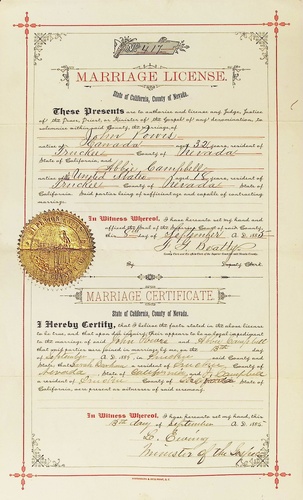 No. 417
MARRIAGE LICENSE.
State of California, County of Nevada.
These Presents are to authorize and license any Judge, Justice
of the Peace, Priest, or Minister of the Gospel of any denomination, to
solemnize within said County, the marriage of
John
native of Canada aged 32 years, resident of
Truckee County of Nevada
State of California, and Abbie Campbell
native of United States aged 18 years, resident of
Truckee County of Nevada State of
California. Said parties being of sufficient age and capable of contracting
marriage.
In Witness Whereof, I have hereunto set my hand and
affixed the Seal of the Superior Court of said County,
this 8th day of September A.D. 1885
By Deputy Clerk.
MARRIAGE CERTIFICATE
State of California, County of Nevada.
I Hereby Certify, that I believe the facts stated in the above license
to be true, and that upon due inquiry, there appears to be no legal impediment
to the marriage of said John and Abbie Campbell
that said parties were joined in marriage by me on the 13th day of
September A.D. 1885, in Truckee said County and
State; that a resident of Truckee County of
Nevada State of California and Campbell
a resident of Truckee County of State of
California, was present as witnesses of said ceremony.
In Witness Whereof, I have hereunto set my hand, this
13th day of September A.D. 1885
L. Ewing
Minister of the Gospel